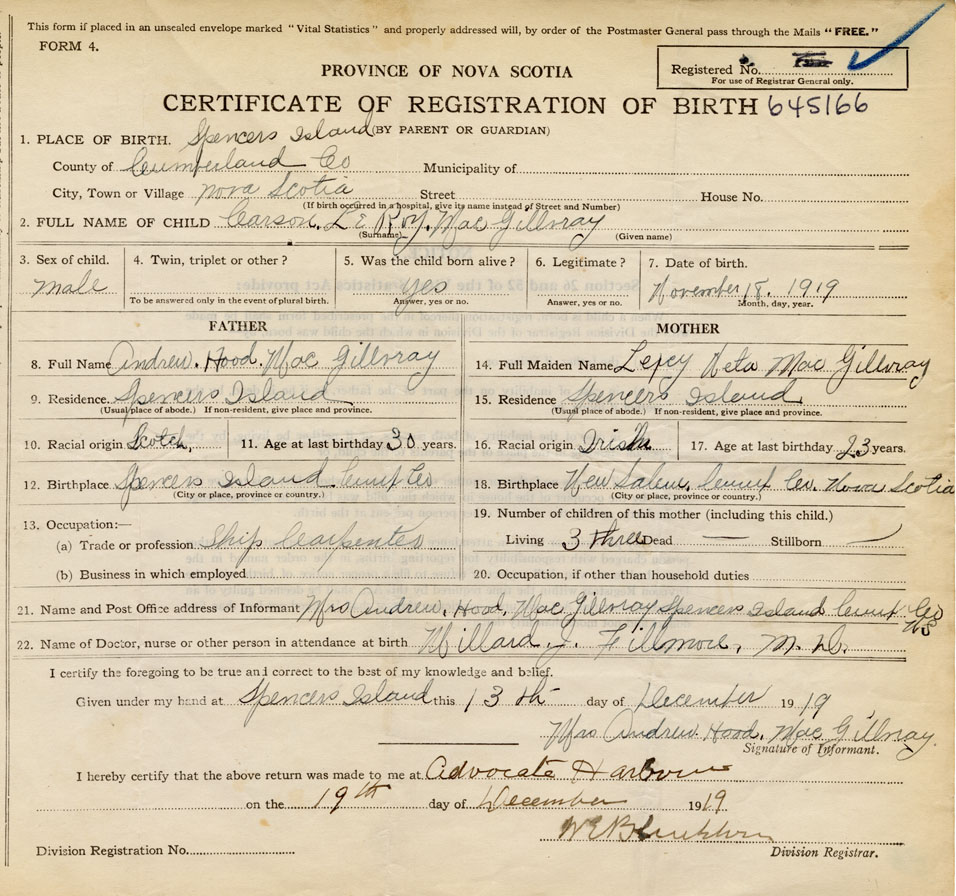 This form if placed in an unsealed envelope marked "Vital Statistics" and properly addressed will, by order of the Postmaster General pass through the Mails "FREE."
FORM 4.
PROVINCE OF NOVA SCOTIA
Registered No.
For use of Registrar General only.
CERTIFICATE OF REGISTRATION OF BIRTH 645166
(BY PARENT OR GUARDIAN)
1. PLACE OF BIRTH. Spencers Island
County of Cumberland Co Municipality of
City, Town or Village Nova Scotia Street House No.
(If birth occurred in a hospital, give its name instead of Street and Number)
2. FULL NAME OF CHILD Carson. Le Roy. Mac Gillvray
(Surname) (Given name)
3. Sex of child. 4. Twin, triplet or other ? 5. Was the child born alive ? 6. Legitimate ? 7. Date of birth.
male yes November 18. 1919
To be answered only in the event of plural birth. Answer, yes or no. Answer, yes or no. Month, day, year.
FATHER
8. Full Name Andrew. Hood. Mac Gillvray
9. Residence. Spencers Island
(Usual place of abode.) If non-resident, give place and province.
10. Racial origin Scotch, 11. Age at last birthday 30 years.
12. Birthplace Spencers Island Cum Co
(City or place, province or country.)
13. Occupation:—
(a) Trade or profession Ship Carpenter
(b) Business in which employed
MOTHER
14. Full Maiden Name Mac Gillvray
15. Residence Spencers Island
(Usual place of abode.) If non-resident, give place and province.
16. Racial origin Irish 17. Age at last birthday 23 years.
18. Birthplace New Salem, Co. Nova Scotia
(City or place, province or country.)
19. Number of children of this mother (including this child.)
Living 3 three Dead — Stillborn —
20. Occupation, if other than household duties
21. Name and Post Office address of Informant Mrs Andrew. Hood. Mac Gillvray Spencers Island Co NS
22. Name of Doctor, nurse or other person in attendance at birth Millard. J. Fillmore, M. D.
I certify the foregoing to be true and correct to the best of my knowledge and belief.
Given under my hand at Spencers Island this 13th day of December 1919
Mrs Andrew. Hood. Mac Gillvray.
Signature of Informant.
I hereby certify that the above return was made to me at Advocate Harbour
on the 19th day of December 1919
Division Registration No.
Division Registrar.